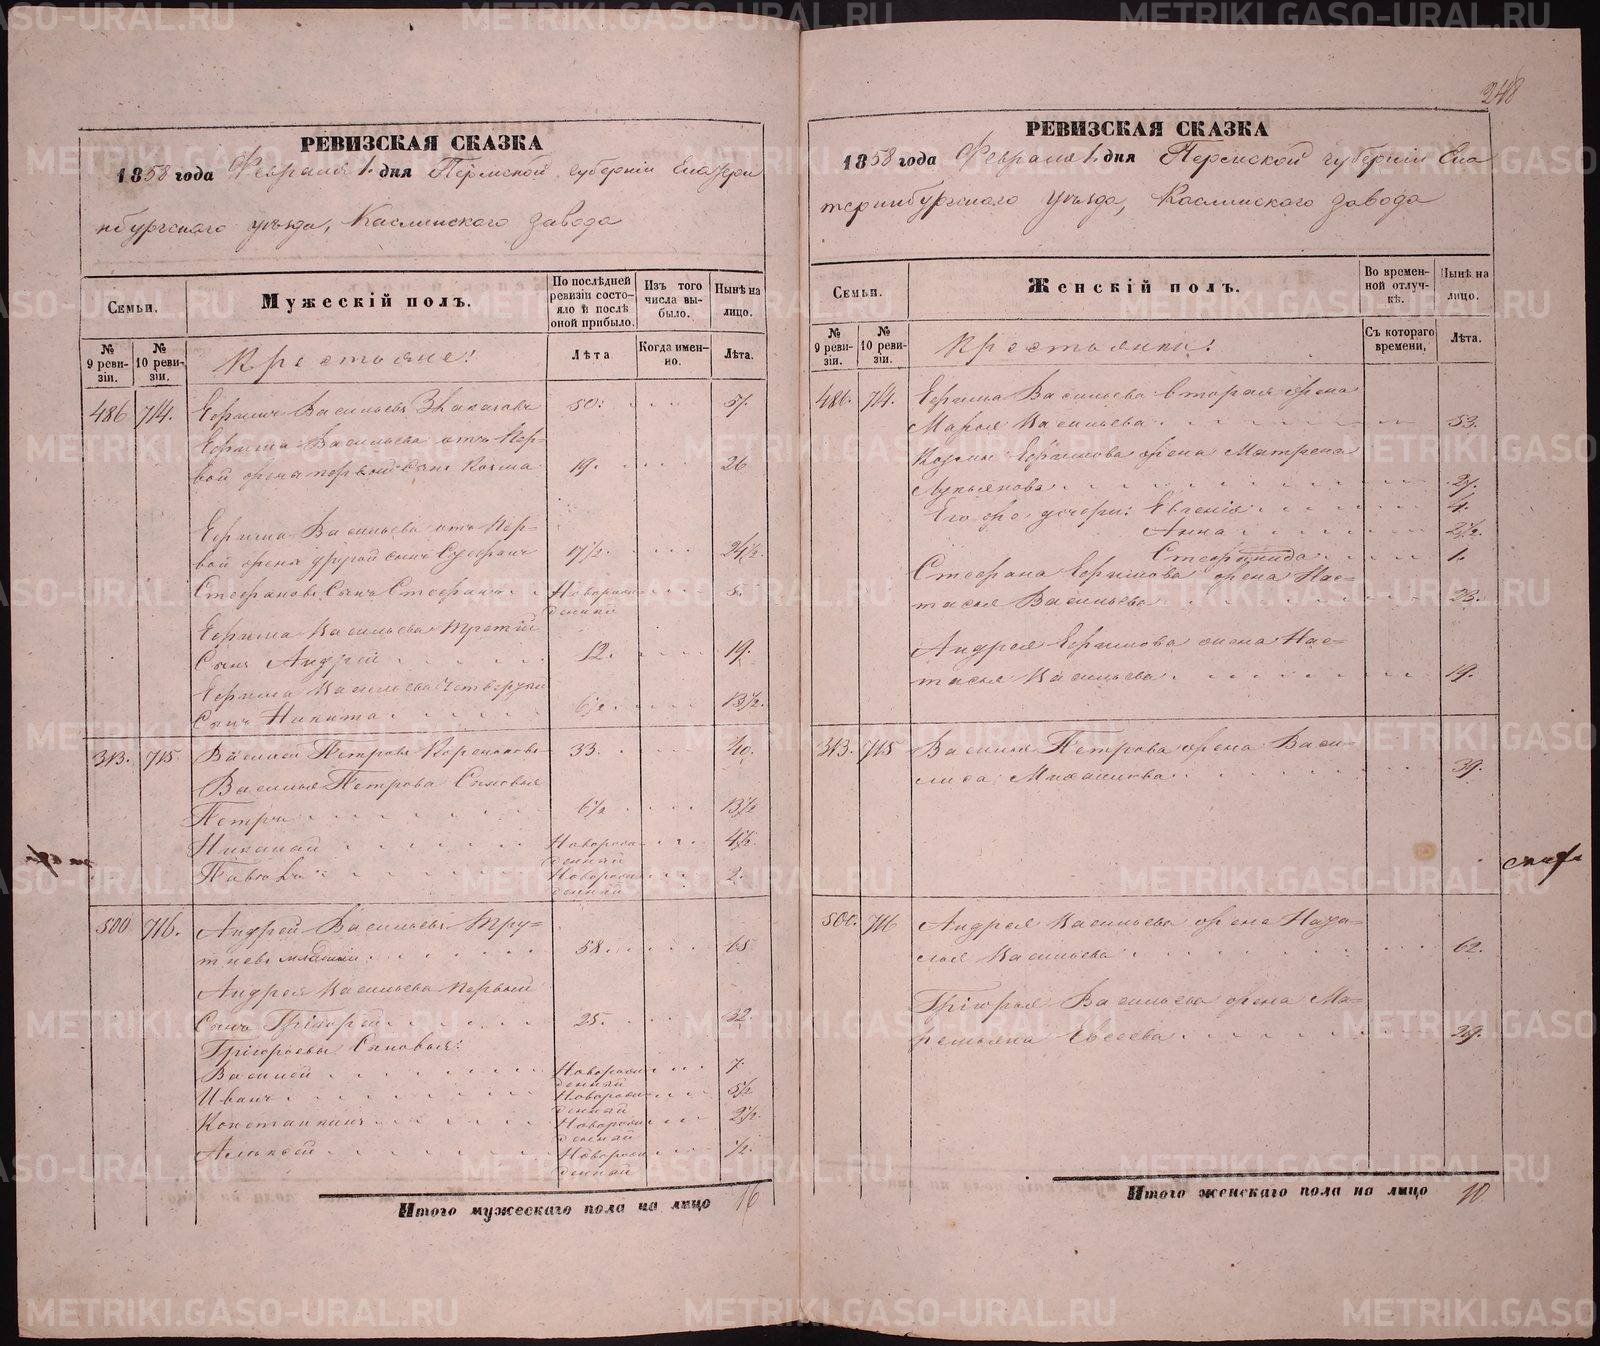 248
РЕВИЗСКАЯ СКАЗКА
1858 года Февраля 1. дня Пермской губерніи Екатери
нбургскаго уѣзда, Каслинскаго завода
Семьи.
Мужескій полъ.
По послѣдней ревизіи состояло и послѣ оной прибыло.
Изъ того числа выбыло.
Нынѣ на лицо.
№ 9 ревизіи.
№ 10 ревизіи.
Крестьяне:
Лѣта.
Когда именно.
Лѣта.
486 714. Ефимъ Васильевъ 50. 57.
Ефима Васильева отъ пер-
вой жены первый сынъ Козма 19. 26
Ефима Васильева отъ пер-
вой жены другой сынъ Стефанъ 17½. 24½.
Стефановъ сынъ Стефанъ Новорожденный 5.
Ефима Васильева третій
сынъ Андрей 12. 19.
Ефима Васильева четвертый
сынъ Никита 6½ 13½.
313. 715. Василей Петровъ 33. 40.
Василья Петрова сыновья
Петръ 6½ 13½
Николай Новорожденный 4½.
Павелъ Новорожденный 2.
500 716. Андрей Васильевъ Тру-
тневъ младшій 58. 65.
Андрея Васильева первый
сынъ Григорей 25. 32.
Григорьевы сыновья:
Василей Новорожденный 7.
Иванъ Новорожденный 5½
Константинъ Новорожденный 2½.
Алексей Новорожденный ½.
Итого мужескаго пола на лицо 16
РЕВИЗСКАЯ СКАЗКА
1858 года Февраля 1. дня Пермской губерніи Ека
теринбургскаго уѣзда, Каслинскаго завода
Семьи.
Женскій полъ.
Во временной отлучкѣ.
Нынѣ на лицо.
№ 9 ревизіи.
№ 10 ревизіи.
Крестьянки:
Съ котораго времени.
Лѣта.
486. 714. Ефима Васильева вторая жена
Марья Васильева 53.
Козмы Ефимова жена Матрена
Лукьянова 27.
Его же дочери: Евгенія 4.
Анна 2½.
1.
Стефана Ефимова жена Нас-
тасья Васильева 23.
Андрея Ефимова жена Нас-
тасья Васильева 19.
313. 715 Василья Петрова жена Васи-
лиса Михайлова 39.
500. 716 Андрея Васильева жена Ната-
лья Васильева 62.
Григорья Васильева жена Ма-
ремьяна Евсеева 29.
Итого женскаго пола на лицо 10